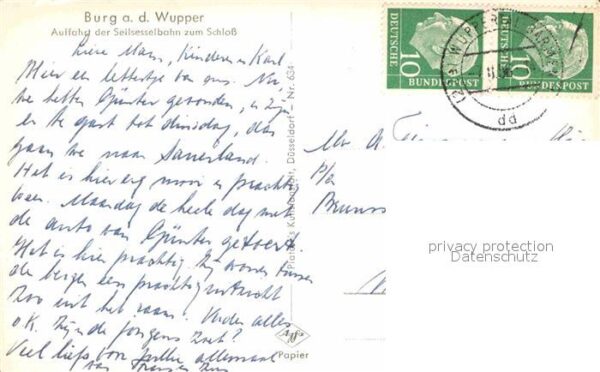 Burg a. d. Wupper
Auffahrt der Seilsesselbahn zum Schloß
Lieve Mam, kinderen en Karl
Hier een lettertje van ons. Nu
we hebben Günter gevonden, en zijn
te gast tot dinsdag, dan
gaan we naar Sauerland.
Het is hier erg mooi en prachtig
weer. Maandag de heele dag met
de auto van Günter getoerd.
Het is hier prachtig zij wonen tussen
de bergen een prachtig uitzicht
zoo uit het raam. Verder alles
o.K. Zijn de jongens zoet?
Veel liefs voor jullie allemaal
van
DEUTSCHE BUNDESPOST 10
DEUTSCHE BUNDESPOST 10
WUPPERTAL-BARMEN
dd
Mr. A.
p/a
Kunstanstalt, Düsseldorf Nr. 634
Papier
privacy protection
Datenschutz